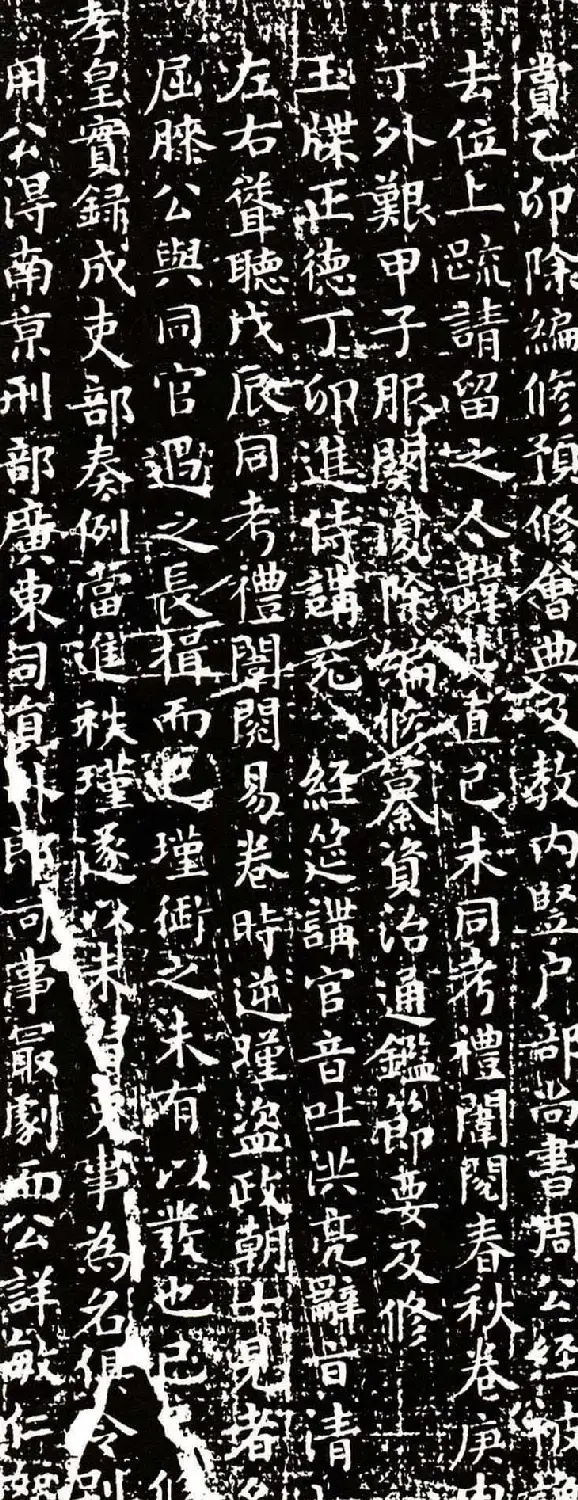 賞乙卯除編修預修會典及教内竪户部尚書周公經被
去位上疏請留之人韙其直己未同考禮闈閱春秋卷庚
丁外艱甲子服闋復除編修纂資治通鑑節要及修
玉牒正德丁卯進侍講充經筵講官音吐洪亮辭旨清
左右聳聽戊辰同考禮闈閱易卷時逆瑾盜政朝士見者
屈膝公與同官遇之長揖而已瑾銜之未有以發也已
孝皇實録成吏部奏例當進秩瑾遂以未習吏事為名俱令别
用公得南京刑部廣東司員外郎司事最劇而公詳敏仁恕